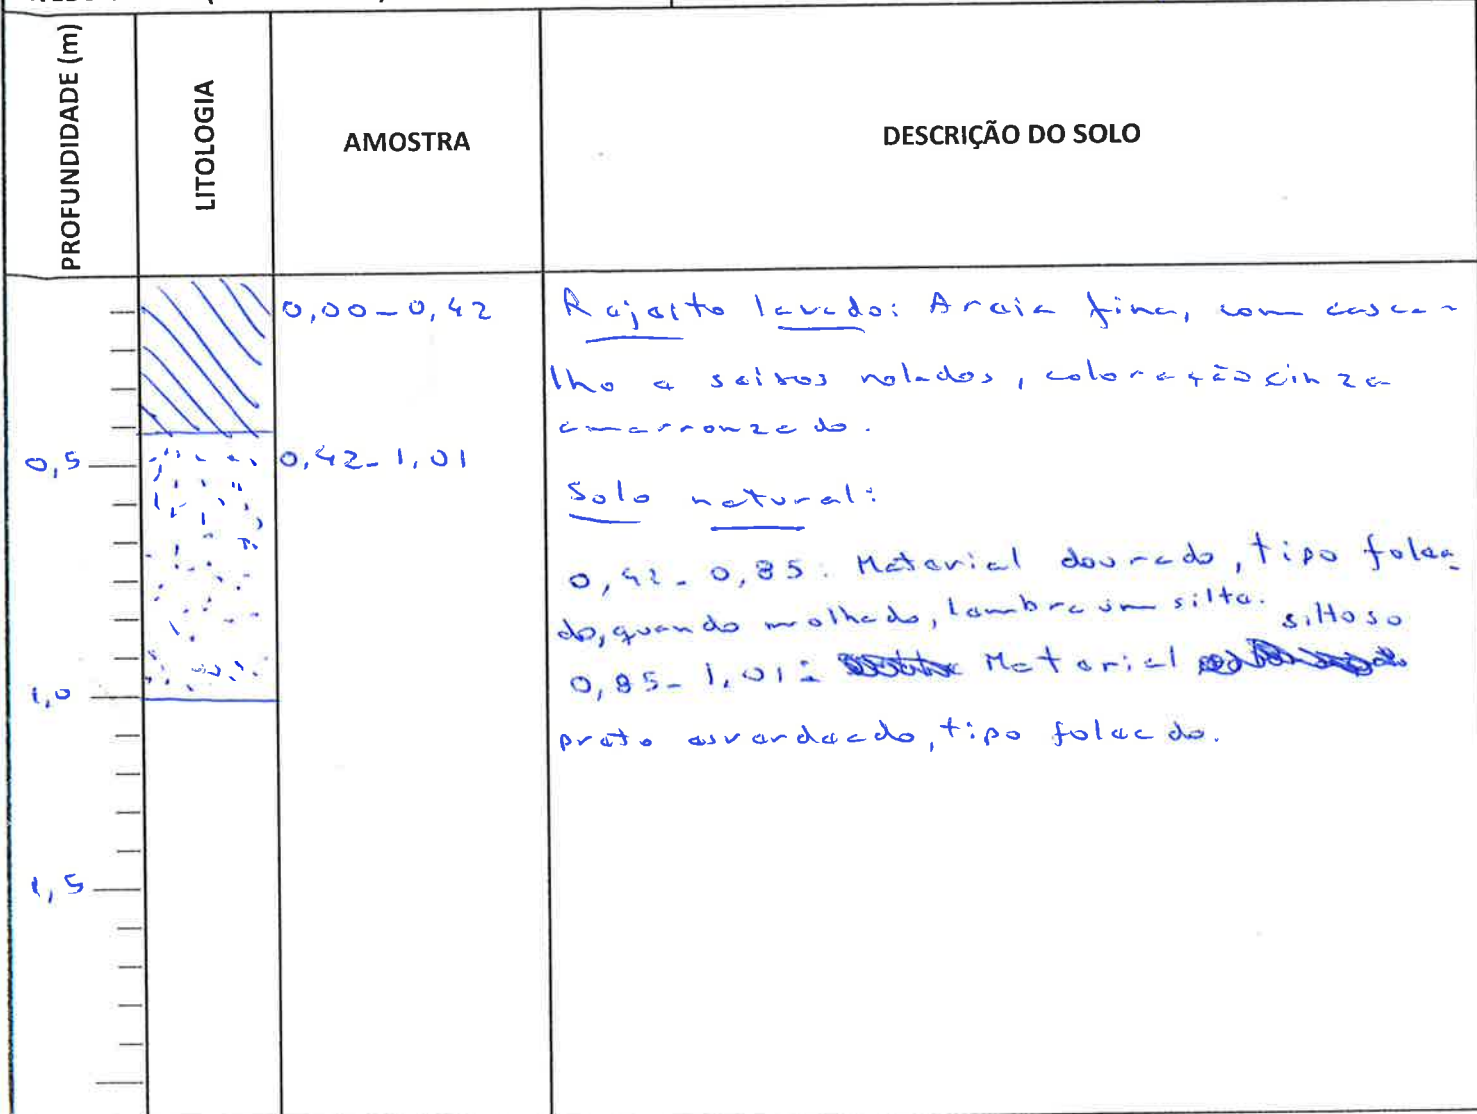 PROFUNDIDADE (m)
LITOLOGIA
AMOSTRA
DESCRIÇÃO DO SOLO
0,00-0,42
Rejeito lavado: Areia fina, com casca-
lho e seixos rolados, coloração cinza
amarronzado.
0,5
0,42-1,01
Solo natural:
0,42-0,85: Material dourado, tipo folea-
do, quando molhado, lembra um silte.
siltoso
0,85-1,01: Material
1,0
preto esverdeado, tipo foleado.
1,5